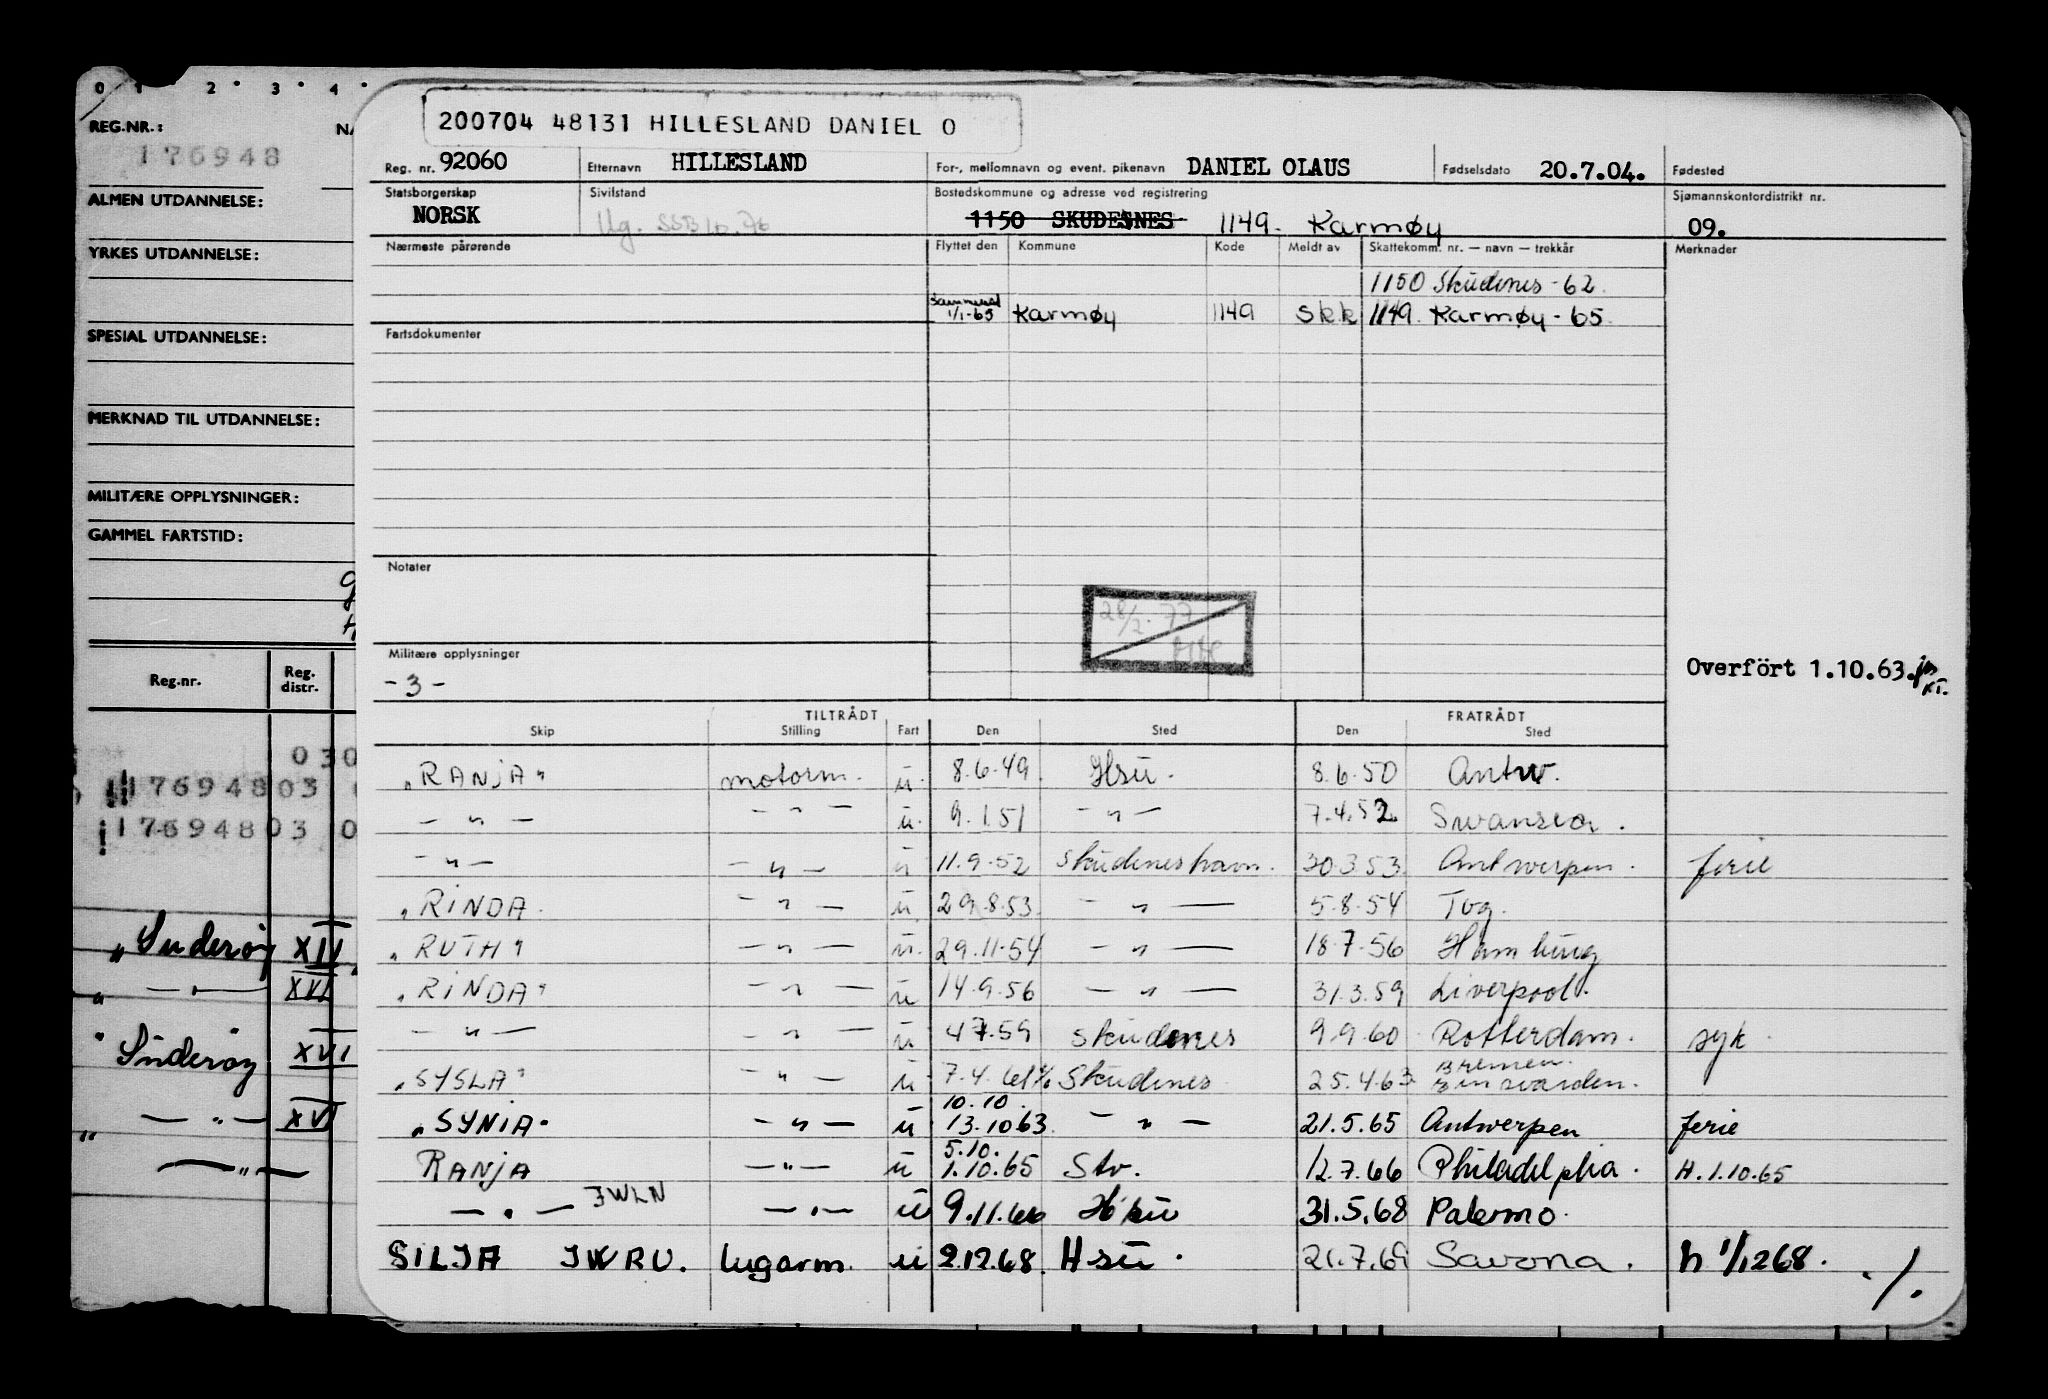 0 1 2 3 4
REG.NR.:
176948
ALMEN UTDANNELSE:
YRKES UTDANNELSE:
SPESIAL UTDANNELSE:
MERKNAD TIL UTDANNELSE:
MILITÆRE OPPLYSNINGER:
GAMMEL FARTSTID:
Reg.nr. Reg. distr.
030
17694803
17694803 0
„Suderøy XIV
„ — " — XVI
"Suderøy" XVI
„ — " — XVI
— " —
200704 48131 HILLESLAND DANIEL O
Reg. nr. 92060 Etternavn HILLESLAND For-, mellomnavn og event. pikenavn DANIEL OLAUS Fødselsdato 20.7.04. Fødested
Statsborgerskap Sivilstand Bostedskommune og adresse ved registrering Sjømannskontordistrikt nr.
NORSK Ug. SSB 10.76 1150 SKUDESNES 1149. Karmøy 09.
Nærmeste pårørende Flyttet den Kommune Kode Meldt av Skattekomm. nr. — navn — trekkår Merknader
1150 Skudenes - 62.
1/1-65 Karmøy 1149 skk 1149. Karmøy - 65.
Fartsdokumenter
Notater
28/2. 77
Militære opplysninger
- 3 -
Overført 1.10.63.
TILTRÅDT FRATRÅDT
Skip Stilling Fart Den Sted Den Sted
„RANJA" motorm. u. 8.6.49. Hsu. 8.6.50 Antw.
— " — — " — u. 9.1.51 — " — 7.4.52. Swansea.
— " — — " — u 11.9.52 Skudeneshavn. 30.3.53. Antwerpen. ferie
„RINDA. — " — u 29.8.53. — " — 5.8.54 Tvg.
„RUTH" — " — u. 29.11.54 — " — 18.7.56 Hamburg
„RINDA" — " — u 14.9.56 — " — 31.3.59 Liverpool.
— " — — " — u 4.7.59 Skudenes 9.9.60 Rotterdam. syk.
„SYSLA" — " — u 7.4.61 Skudenes. 25.4.63 Bremen. Einswarden.
10.10.
„SYNIA" — " — u 13.10.63. — " — 21.5.65 Antwerpen ferie
5.10.
RANJA — " — u 1.10.65 Stv. 12.7.66 Philadelphia. H. 1.10.65
— " — JWLN — " — u 9.11.66 31.5.68 Palermo.
SILJA JWRU. lugarm. u 2.12.68. Hsu. 21.7.69 Savona. h 1/1268. ./.